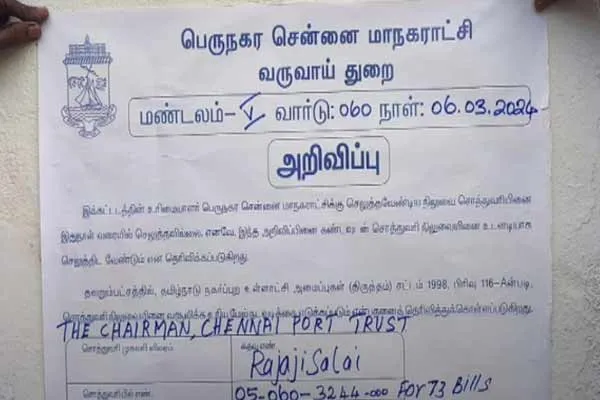 பெருநகர சென்னை மாநகராட்சி
வருவாய் துறை
மண்டலம்-V வார்டு: 060 நாள்: 06.03.2024
அறிவிப்பு
இக்கட்டடத்தின் உரிமையாளர் பெருநகர சென்னை மாநகராட்சிக்கு செலுத்தவேண்டிய நிலுவை சொத்துவரியினை
இதுநாள் வரையில் செலுத்தவில்லை. எனவே, இந்த அறிவிப்பினை கண்டவுடன் சொத்துவரி நிலுவையினை உடனடியாக
செலுத்திட வேண்டும் என தெரிவிக்கப்படுகிறது.
தவறும்பட்சத்தில், தமிழ்நாடு நகர்ப்புற உள்ளாட்சி அமைப்புகள் (திருத்தம்) சட்டம் 1998, பிரிவு 116-A-ன்படி,
சொத்துவரி நிலுவையினை வசூலிக்க உரிய மேல்நடவடிக்கை எடுக்கப்படும் என்பதனைத் தெரிவித்துக்கொள்ளப்படுகிறது.
THE CHAIRMAN, CHENNAI PORT TRUST
சொத்துவரி முகவரி விவரம் கதவு எண்.
Rajaji Salai
சொத்துவரியின் எண். 05-060-3244-000 For 73 Bills